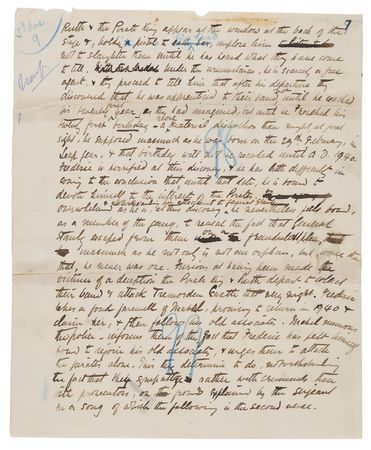 3rd Pro
9
7
Ruth & the Pirate King appear at the window at the back of the
stage &, holding a pistol to each ear, implore him
not to slaughter them until he has heard what they have come
to tell. Under the circumstances, he is scarcely a free
agent, & they proceed to tell him that after his departure they
discovered that he was apprenticed to their band until he reached
his twenty first year, as they had imagined, but until he reached his
twenty first birthday - a material distinction than might at first
sight, be supposed inasmuch as he was born on the 29th February, in
Leap year, & that birthday will not be reached until A.D. 1940.
Frederic is horrified at this discovery, & he has little difficulty in
coming to the conclusion that until that date, he is bound to
devote himself to the interest of the Pirates
overwhelmed as he is, at this discovery, he nevertheless, feels bound,
as a member of the gang, to reveal the fact that General
Stanley escaped from them on a fraudulent plea,
inasmuch as he not only is not an orphan, but
that, he never was one. Furious at having been made the
victims of a deception the Pirate King & Ruth depart to collect
their band & attack Tremorden Castle that very night. Frederic
takes a fond farewell of Mabel, promising to return in 1940 &
claim her, & then follows his old associates. Mabel summons
the police, informs them of the fact that Frederic has felt himself
bound to rejoin his old associates, & urges them to attack
the pirates alone. This they determine to do, notwithstanding
the fact that they sympathize rather with criminals than
with prosecutors, on the ground explained by the sergeant
in a song of which the following is the second verse.